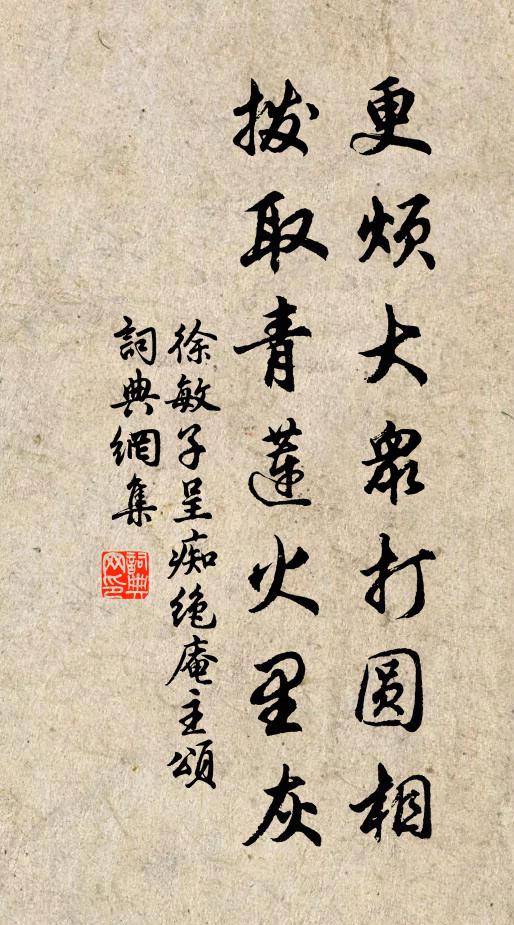 更烦大衆打圆相
拨取青莲火里灰
徐敏子呈痴绝庵主頌
詞典網集
詞典網印